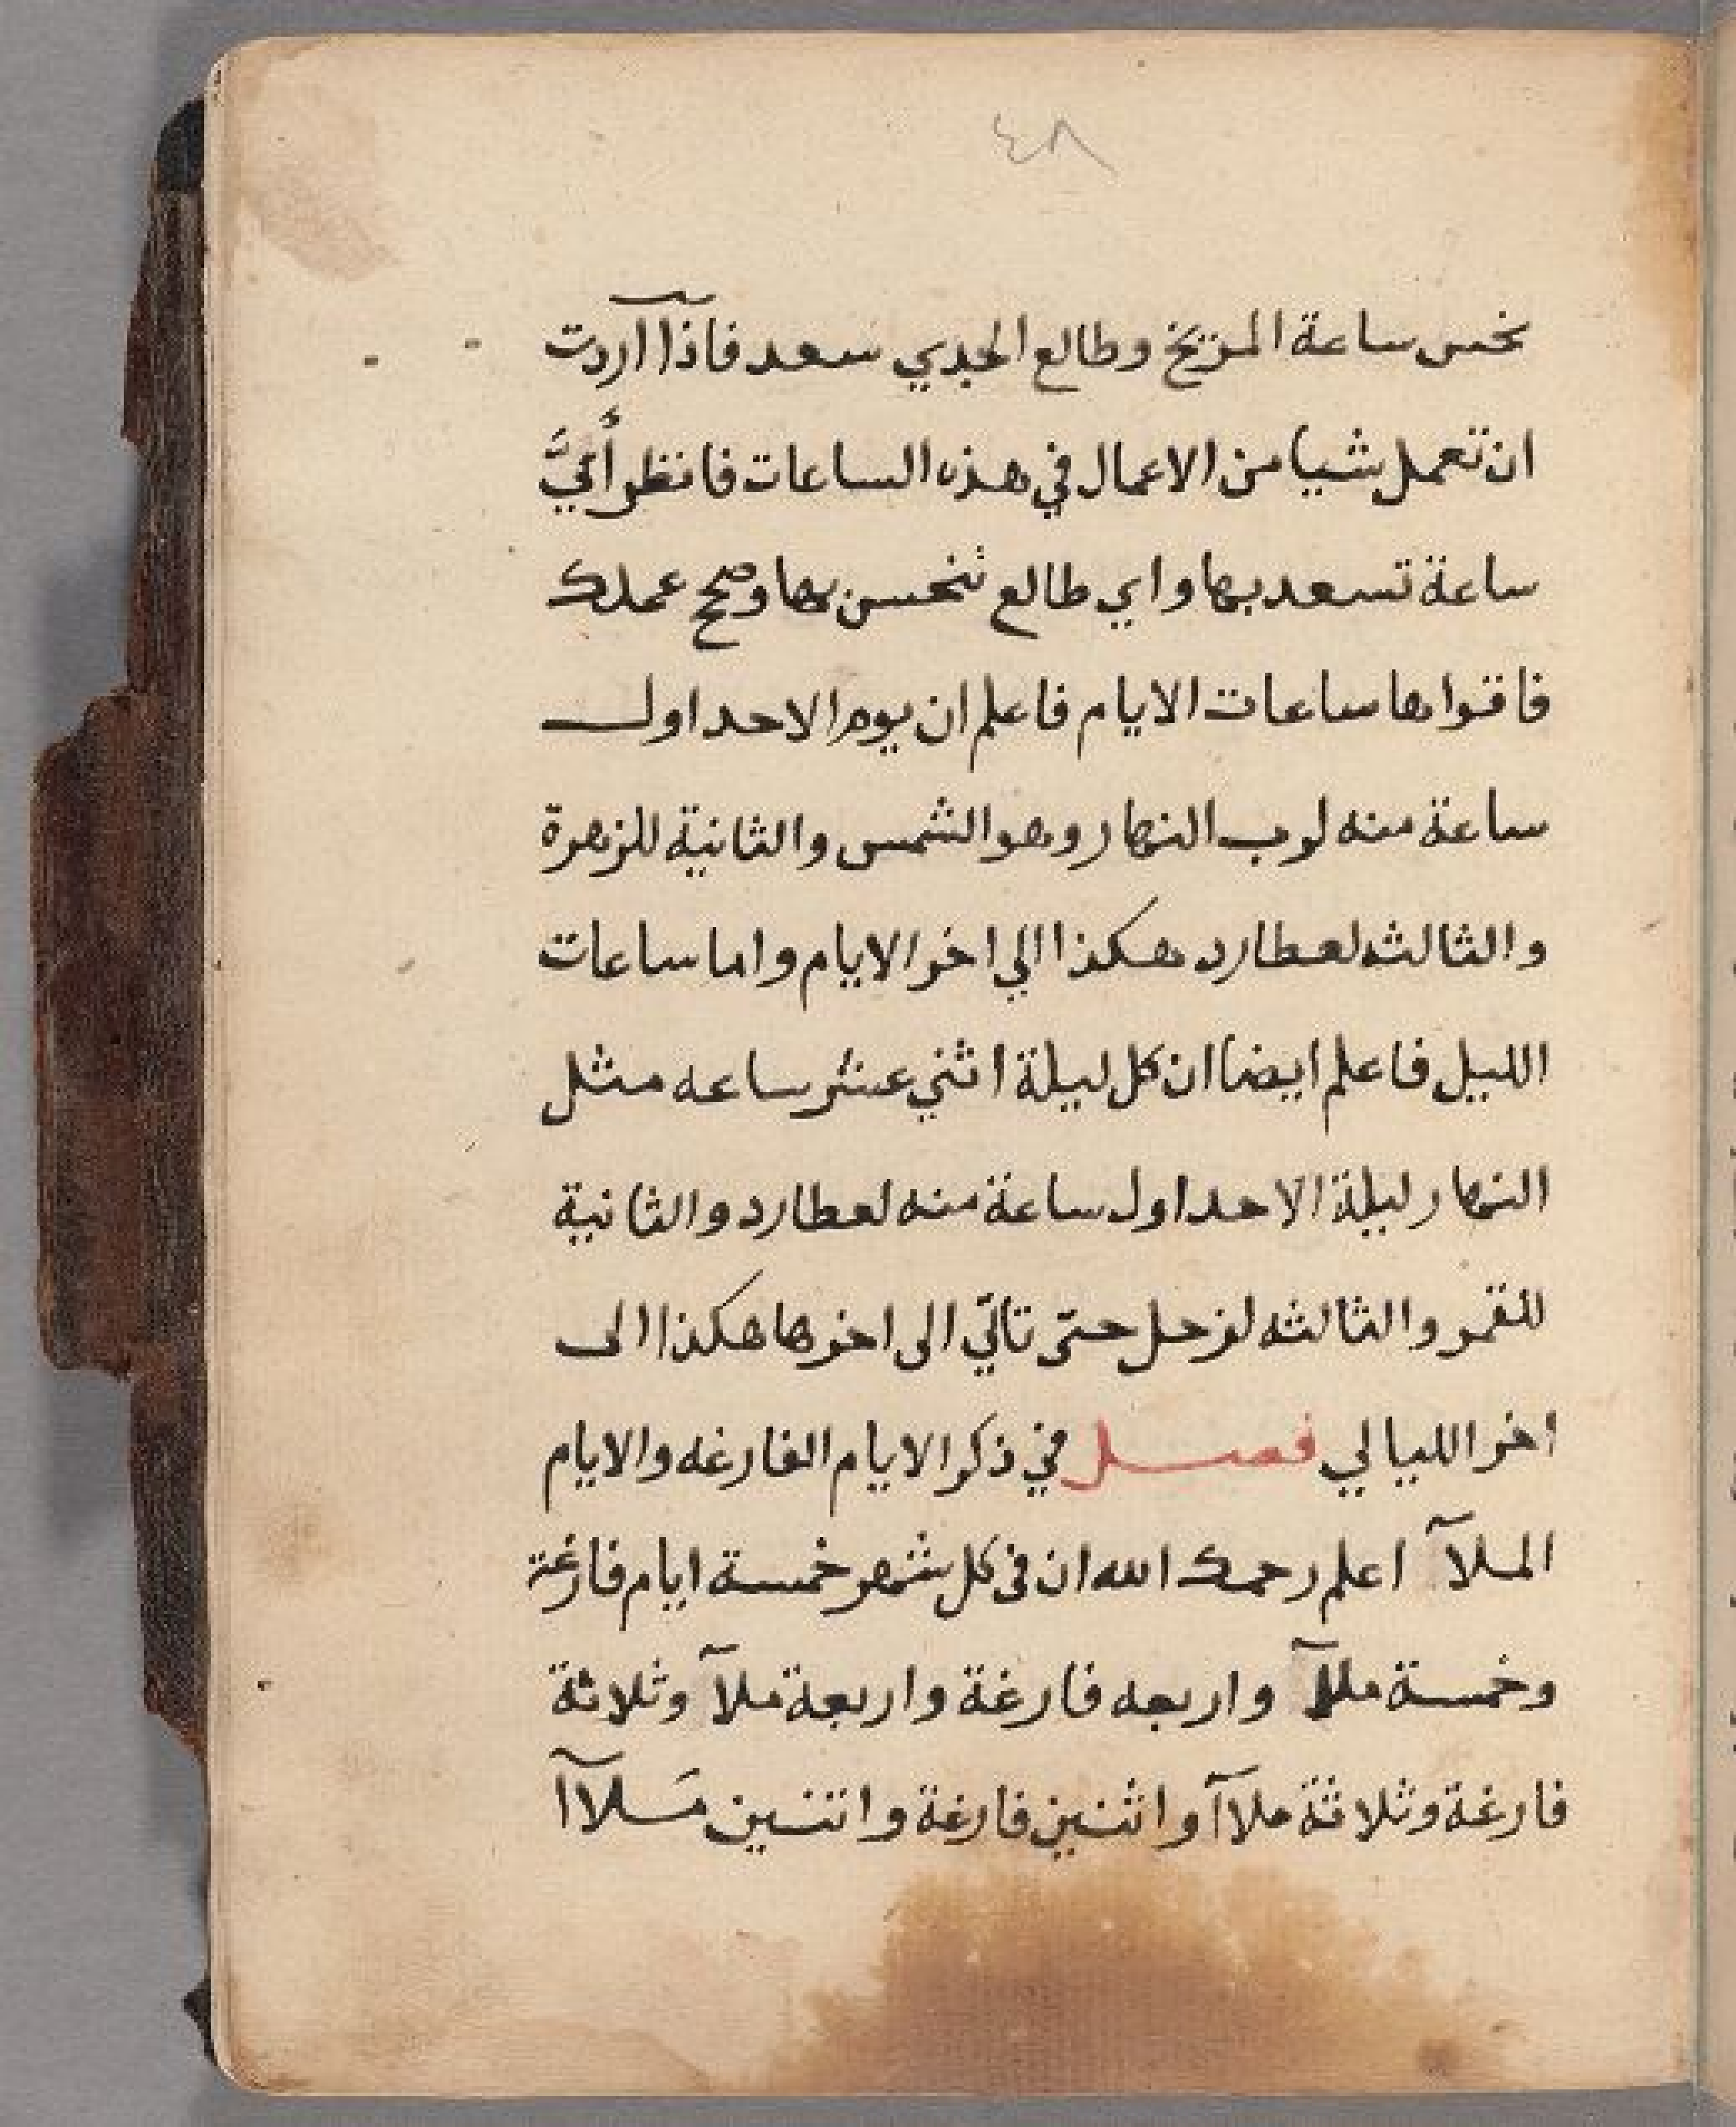 ٤٨
نحس ساعة المريخ وطالع الجدي سعد فاذا آردت
ان تعمل شيا من الاعمال في هذه الساعات فانظر أيَّ
ساعة تسعد بها واي طالع تنحس بها وصح عملك
فاقوامها ساعات الايام فاعلم ان يوم الاحد اول
ساعة منه لرب النهار وهو الشمس والثانية للزهرة
والثالثه لعطارد هكذا الي اخر الايام واما ساعات
الليل فاعلم ايضا ان كل ليلة اثني عشر ساعه مثل
النهار ليلة الاحد اول ساعة منه لعطارد والثانية
للقمر والثالثه لزحل حتى تاتي الى اخرها هكذا الى
اخر الليالي فصل في ذكر الايام الفارغه والايام
الملآ اعلم رحمك الله ان في كل شهر خمسة ايام فارغة
وخمسة ملآ واربعه فارغة واربعة ملآ وثلاثة
فارغة وثلاثة ملاآ واثنين فارغة واتنين مَلاآ